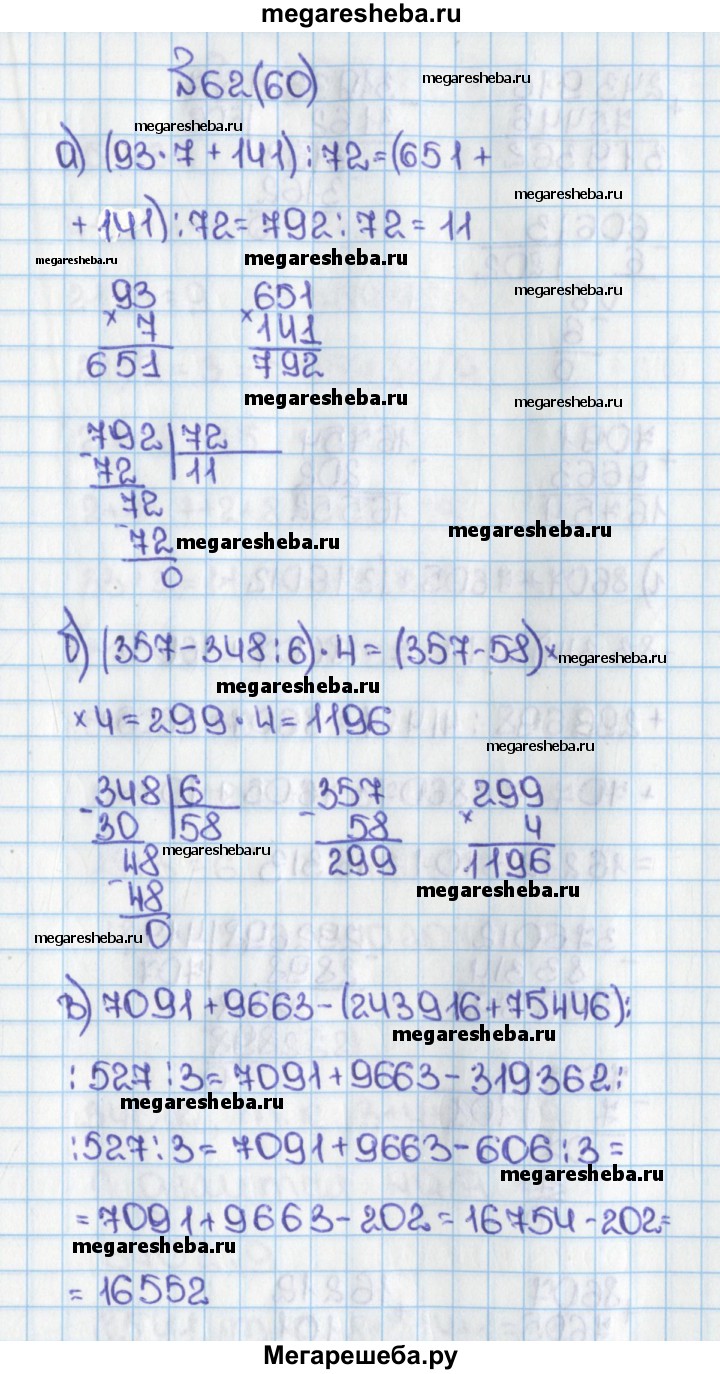 megaresheba.ru
№62(60)
megaresheba.ru
megaresheba.ru
а) (93·7+141):72=(651+
megaresheba.ru
+141):72=792:72=11
megaresheba.ru
megaresheba.ru
93 651
megaresheba.ru
× 7 ×141
651 792
megaresheba.ru
megaresheba.ru
792|72
-72 11
72
megaresheba.ru
-72
megaresheba.ru
0
б) (357-348:6)·4=(357-58)×
megaresheba.ru
megaresheba.ru
×4=299·4=1196
megaresheba.ru
348|6 357 299
-30 58 - 58 × 4
48 299 1196
megaresheba.ru
megaresheba.ru
-48
0
megaresheba.ru
в) 7091+9663-(243916+75446):
megaresheba.ru
:527:3=7091+9663-319362:
megaresheba.ru
:527:3=7091+9663-606:3=
megaresheba.ru
=7091+9663-202=16754-202=
megaresheba.ru
=16552
Мегарешеба.ру